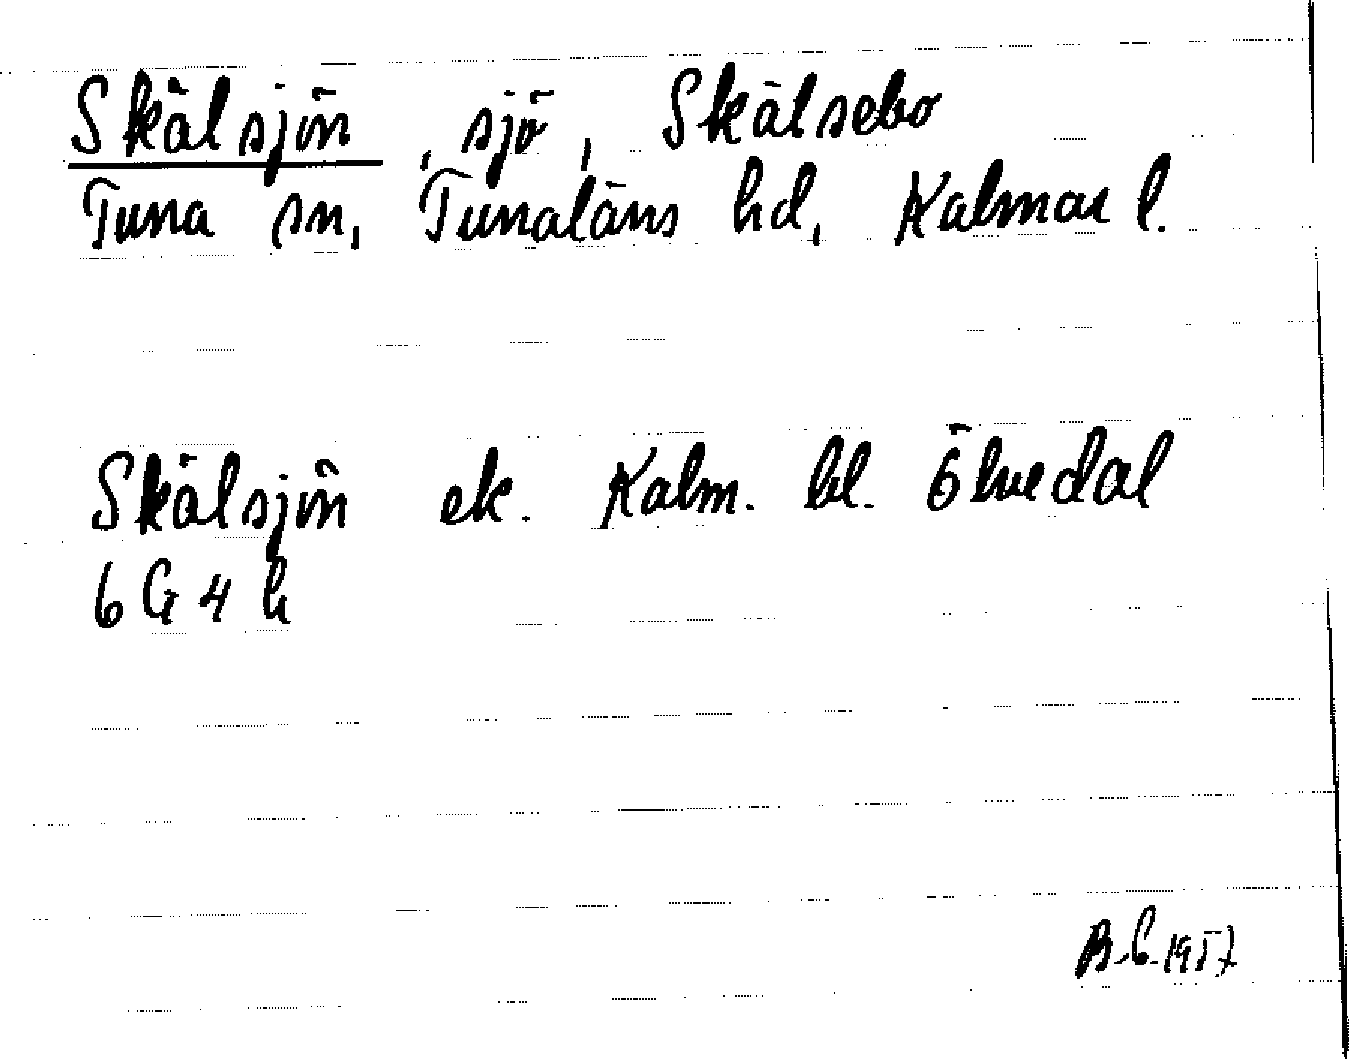 Skälsjön, sjö, Skälsebo
Tuna sn, Tunaläns hd, Kalmar l.
Skälsjön ek. Kalm. bl. Ölvedal
6 G 4 h
B.C. 1957